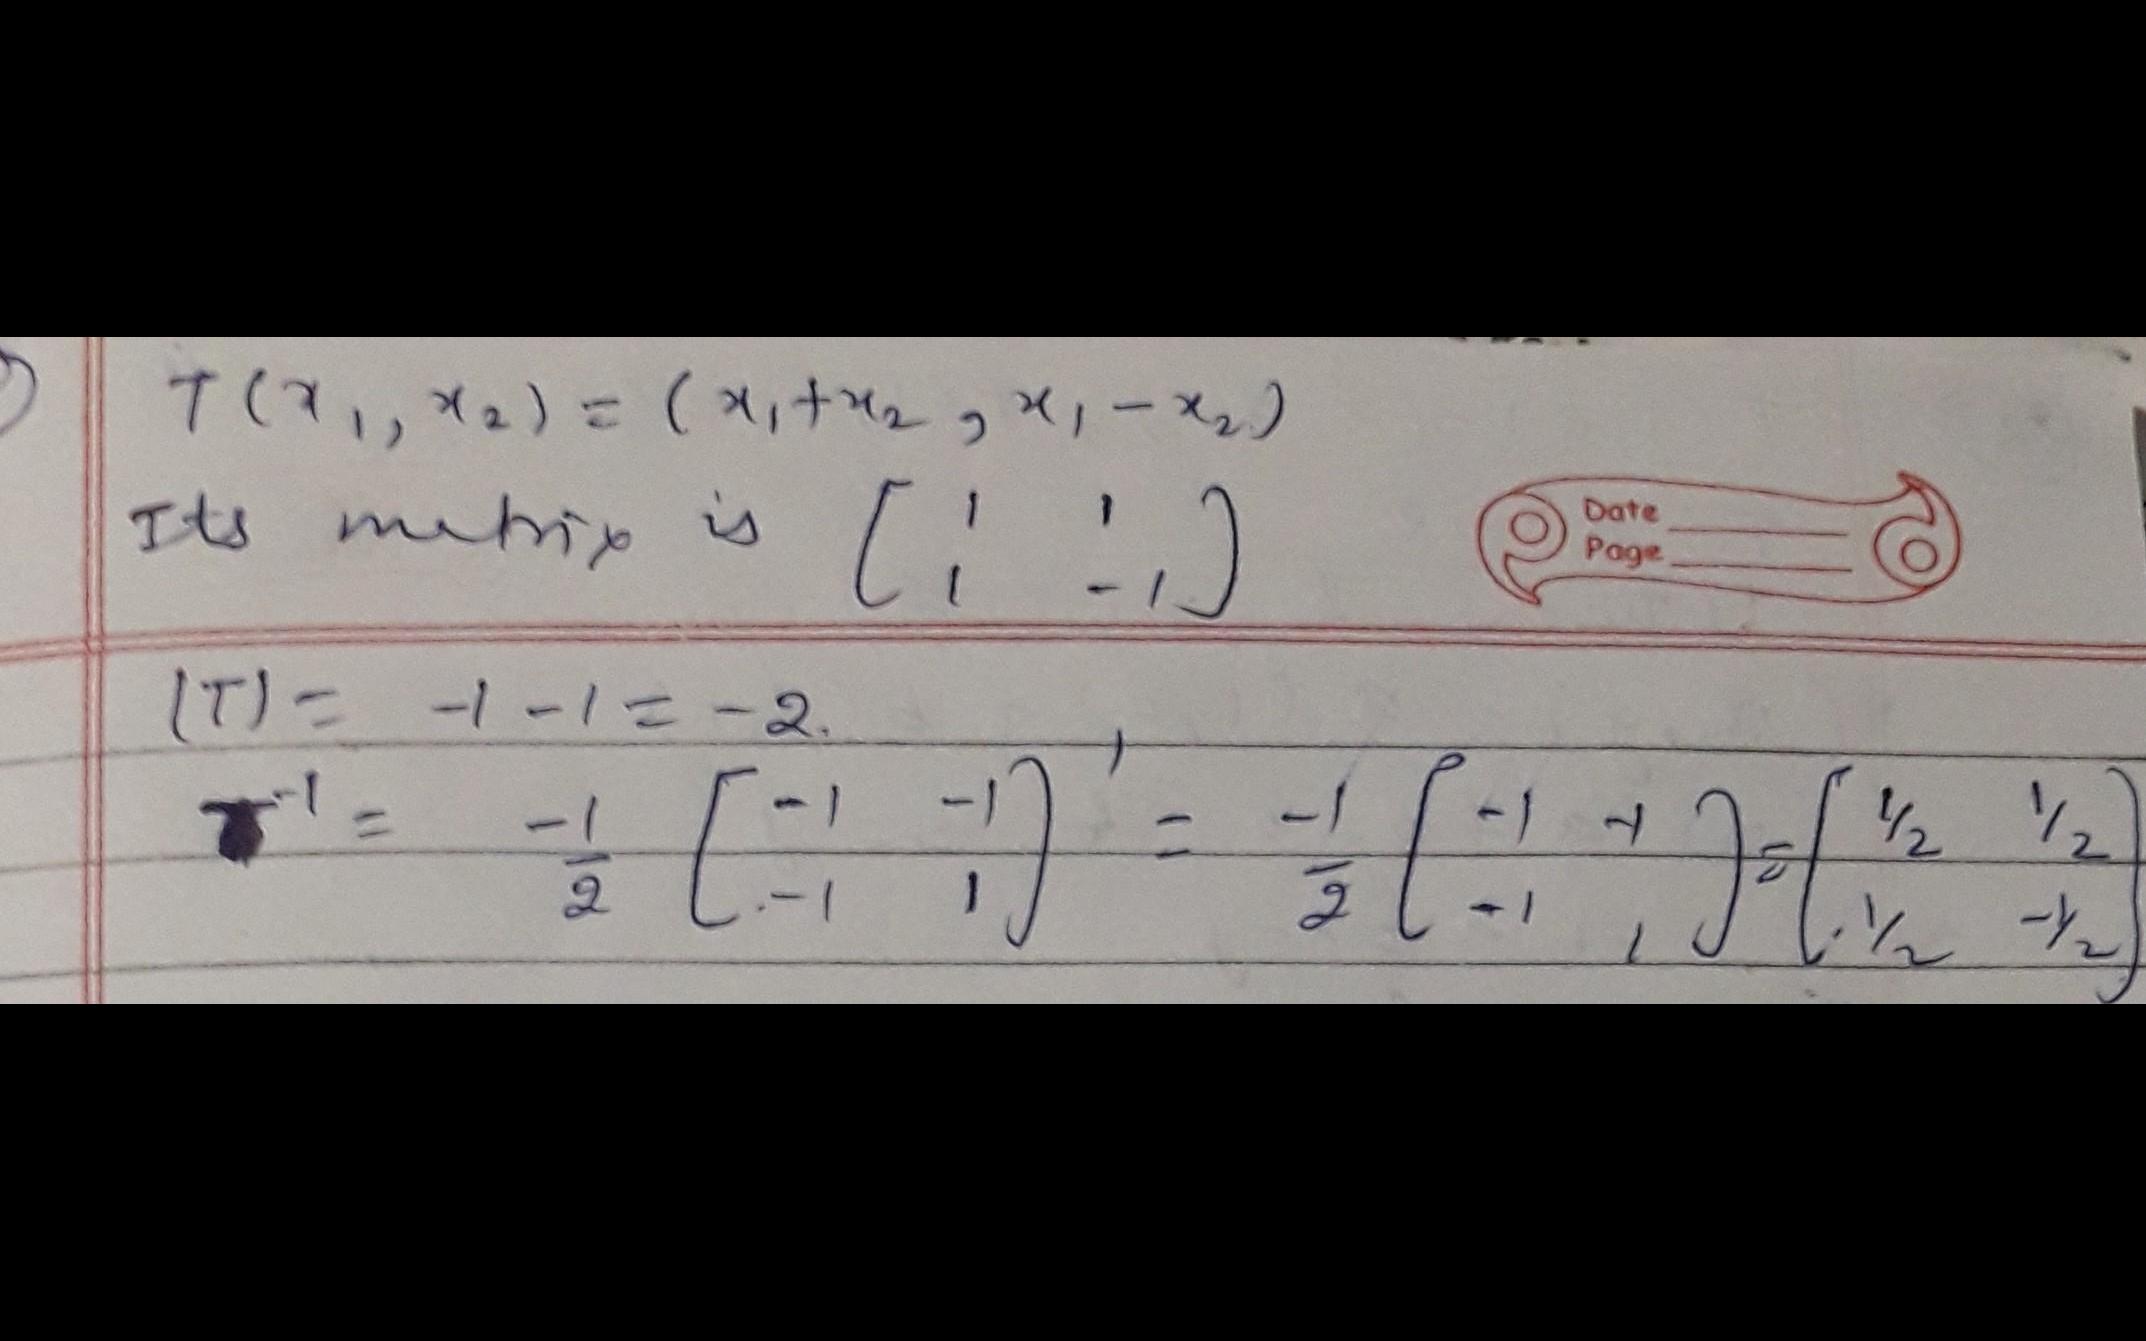 T(x₁, x₂) = (x₁+x₂, x₁-x₂)
Its matrix is [1 1; 1 -1]
Date
Page
|T| = -1 -1 = -2.
T⁻¹ = -1/2 [-1 -1; -1 1]' = -1/2 [-1 -1; -1 1] = [1/2 1/2; 1/2 -1/2]